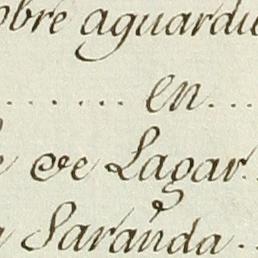 obre aguardie
....... en ....
e de Lagar.
a Saranda.